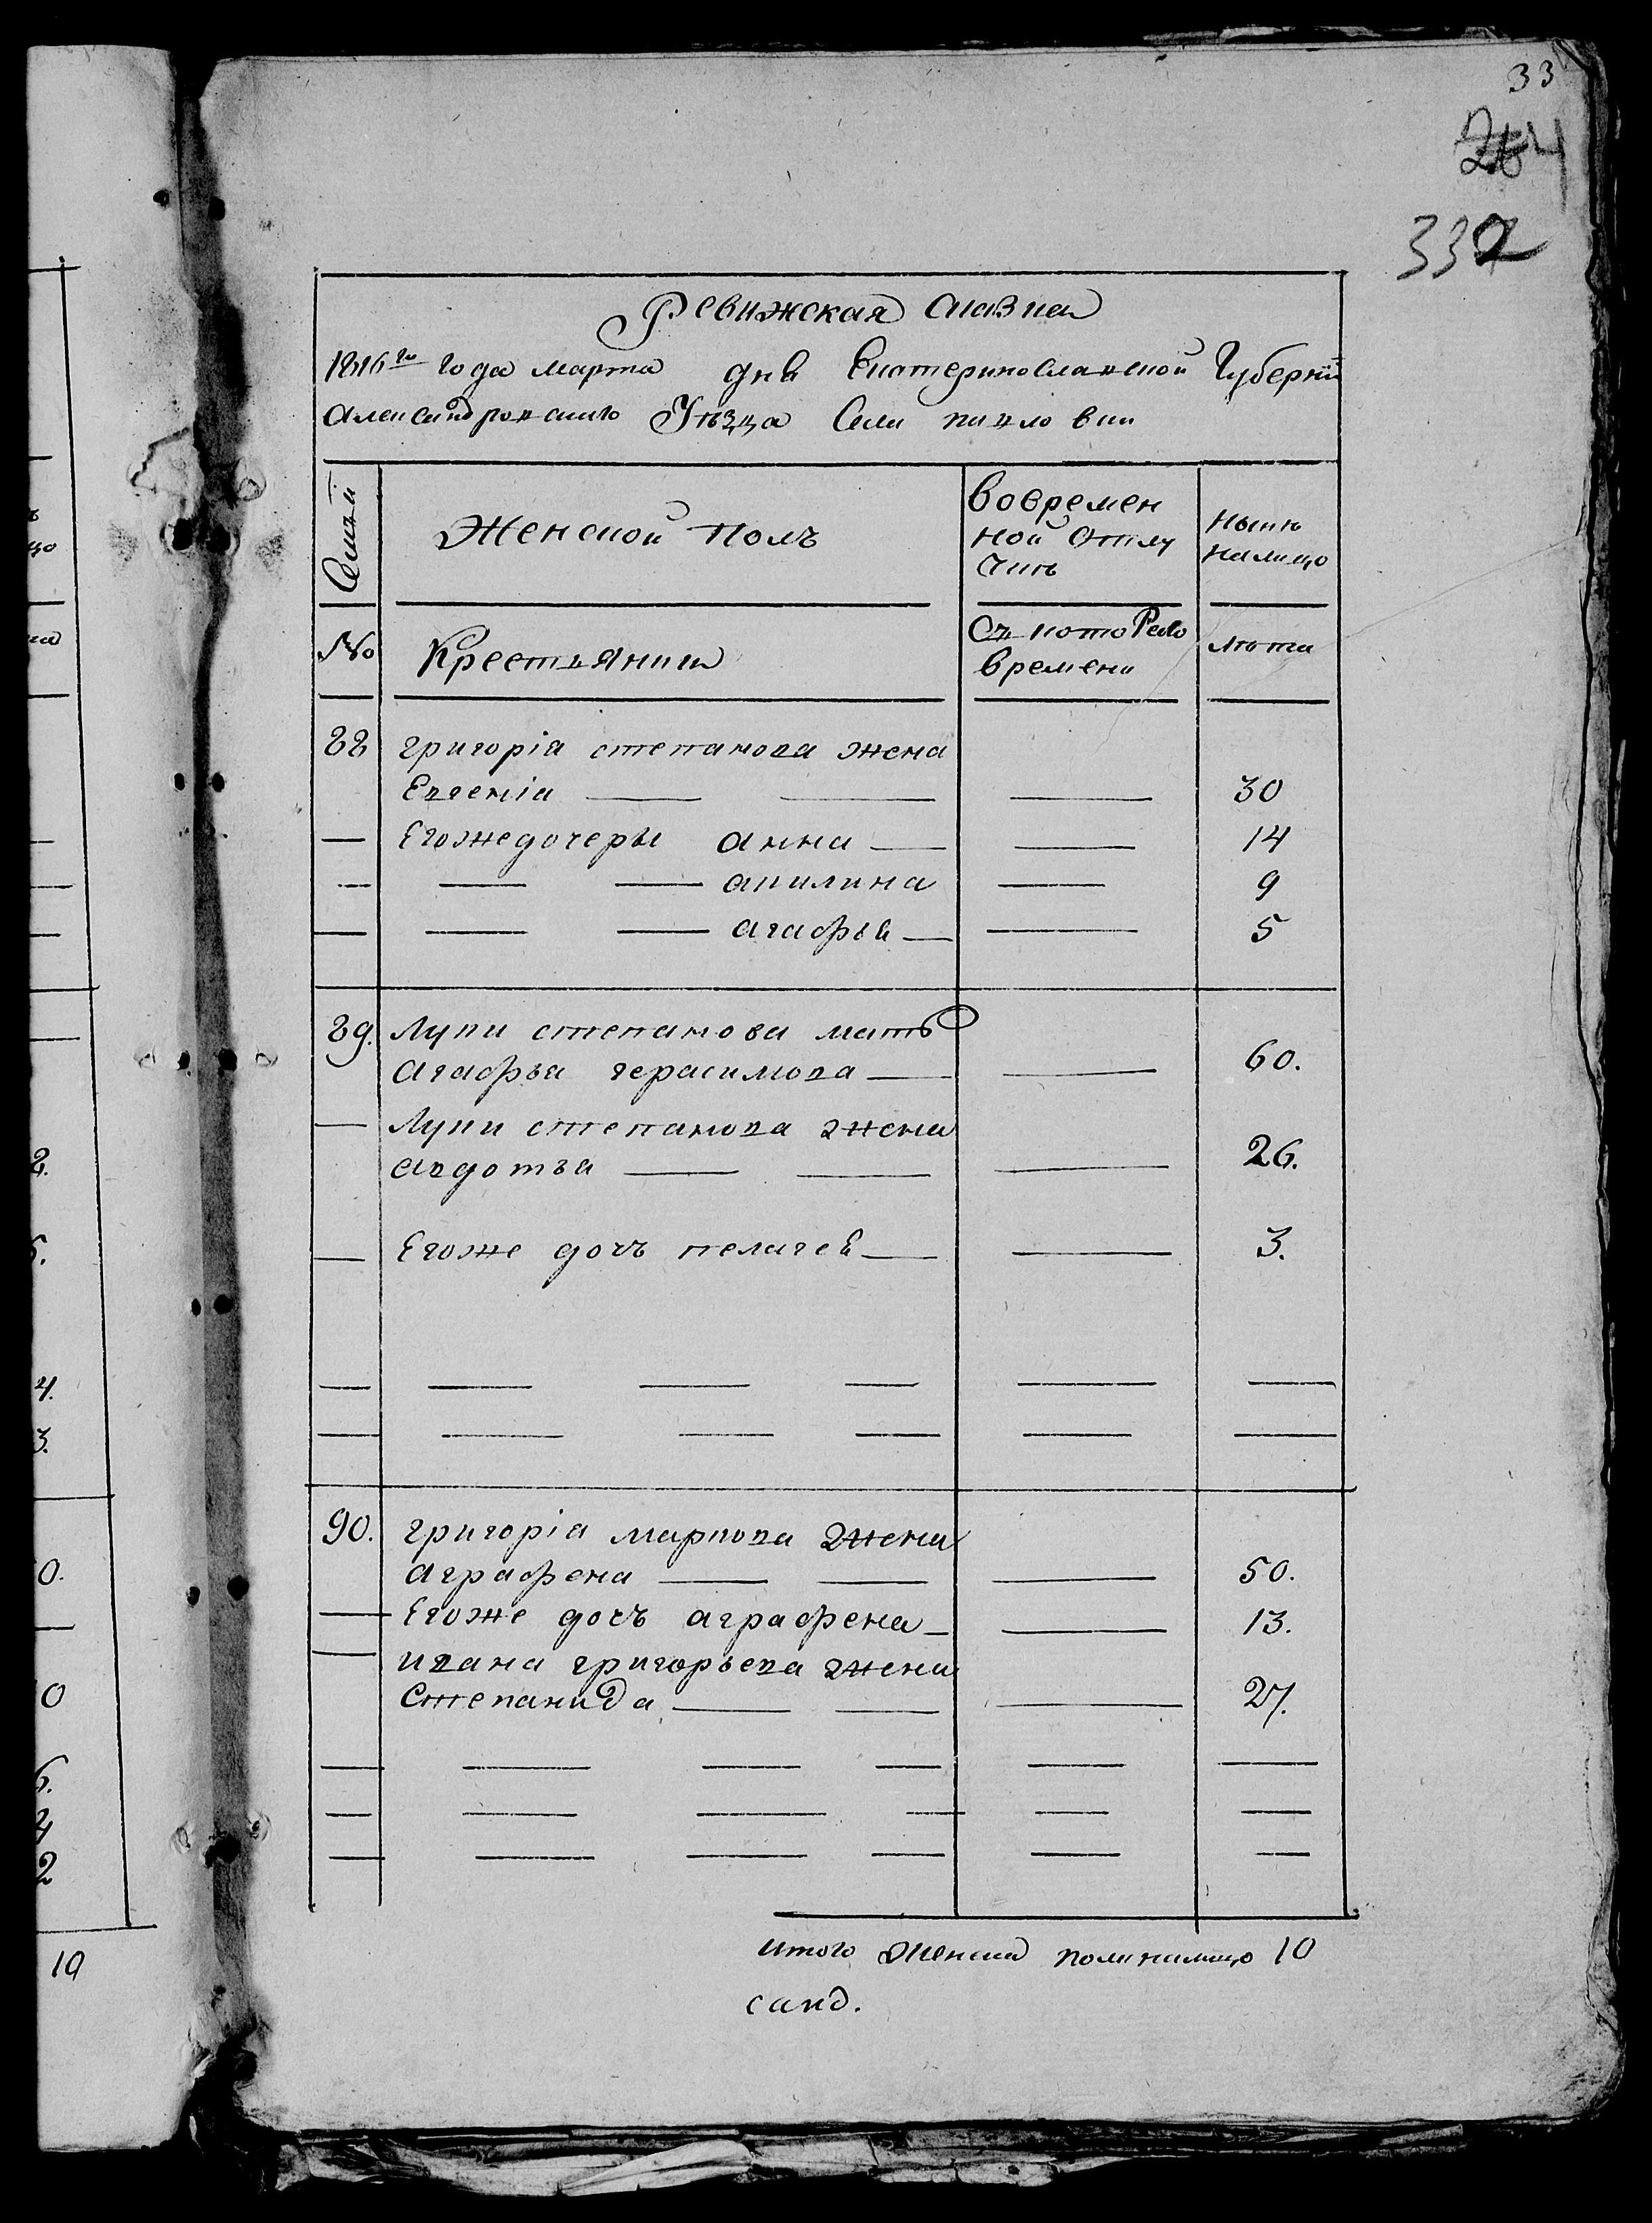 33
264
332
Ревижская сказка
1816го года марта дня Екатеринославской Губернїи
Александровскаго Уѣзда Села павловки
Семьи
Женской полъ
вовремен
ной отлу
чкѣ
нынѣ
налицо
№
Крестьянки
Съ котораго
времени
лѣта
88 григорія степанова жена
Евгенія — — — 30
— Егожедочеры анна — — 14
— — — акилина — 9
— — — агафья — — 5
89. Луки степанова мать
агафья герасимова — — 60.
— Луки степанова жена
авдотья — — — 26.
— Егоже дочь пелагея — — 3.
90. григорія маркова жена
аграфена — — — 50.
— Егоже дочь аграфена — — 13.
— ивана григорьева жена
Степанида — — — 27.
итого женска пола налицо 10
2.
4.
3.
0.
0
2
10